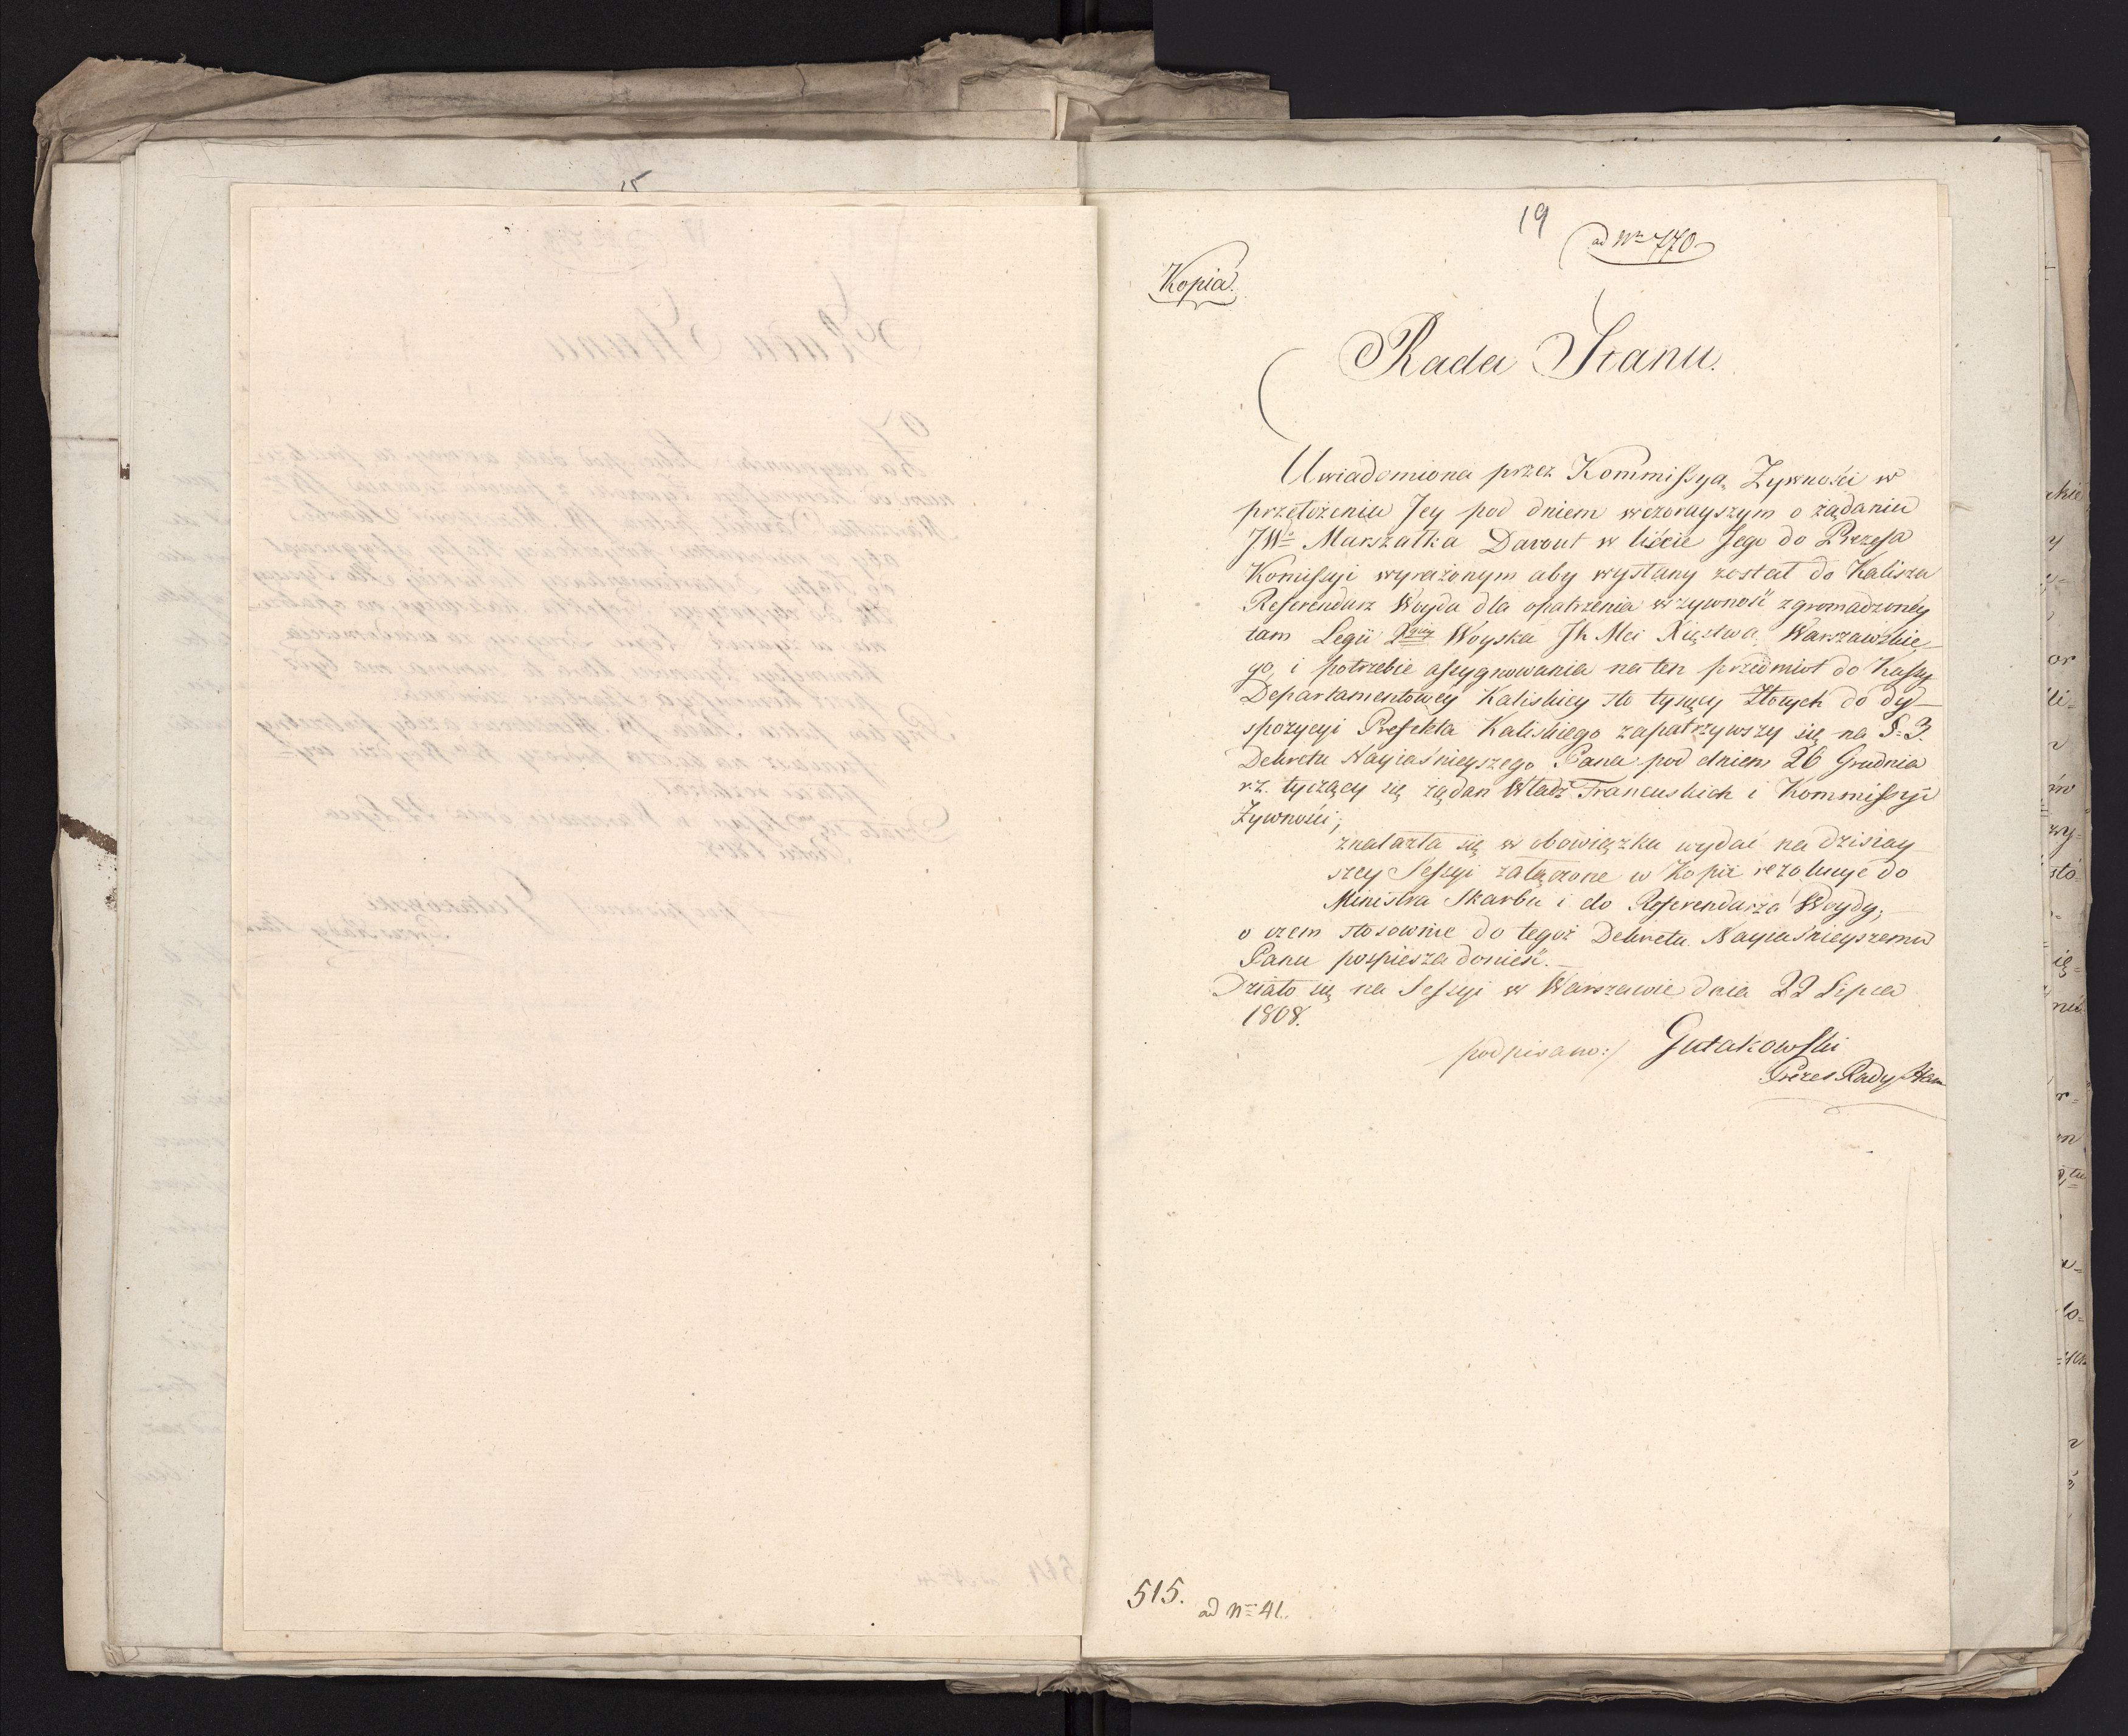 15
19
ad Nr 770
Kopia.
Rada Stanu.
Uwiadomiona przez Kommissyą Żywności w
przełożeniu Jey pod dniem wczorayszym o żądaniu
JWo Marszałka Davout w liście Jego do Prezesa
Komissyi wyrażonym aby wysłany został do Kalisza
Referendarz Woyda dla opatrzenia w żywność zgromadzoney
tam Legii 2giey Woyska Jk Mci Xięstwa Warszawskie-
go, i potrzebie assygnowania na ten przedmiot do Kassy
Departamentowey Kaliskiey sto tysięcy Złotych do dy-
spozycyi Prefekta Kaliskiego zapatrzywszy się na §. 3.
Dekretu Nayiaśnieyszego Pana pod dniem 26 Grudnia
r.z. tyczący się żądań Władz Francuskich i Kommissyi
Żywności;
znalazła się w obowiązku wydać na dzisiay
szey Sessyi załączone w Kopii rezolucye do
Ministra Skarbu i do Referendarza Woydy;
o czem stosownie do tegoż Dekretu Nayiaśnieyszemu
Panu pospiesza donieść.
Działo się na Sessyi w Warszawie dnia 22 Lipca
1808.
podpisano:/ Gutakowski
Prezes Rady Stanu
515. ad Nr 41.